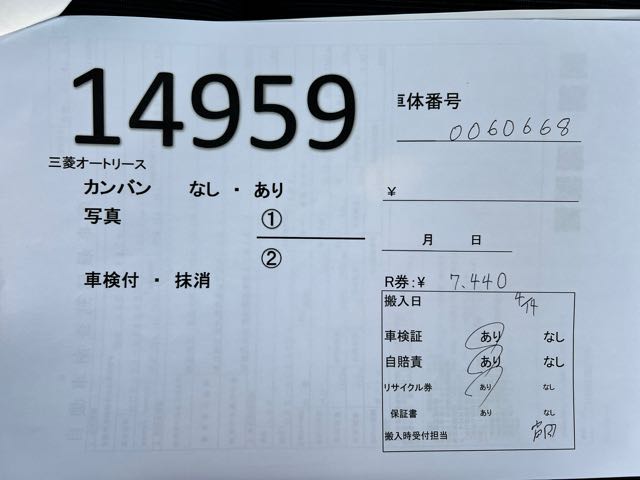 14959
車体番号
0060668
三菱オートリース
カンバン なし ・ あり
¥
写真 ①
②
月 日
車検付 ・ 抹消
R券:¥ 7.440
搬入日 4/14
車検証 あり なし
自賠責 あり なし
リサイクル券 あり なし
保証書 あり なし
搬入時受付担当